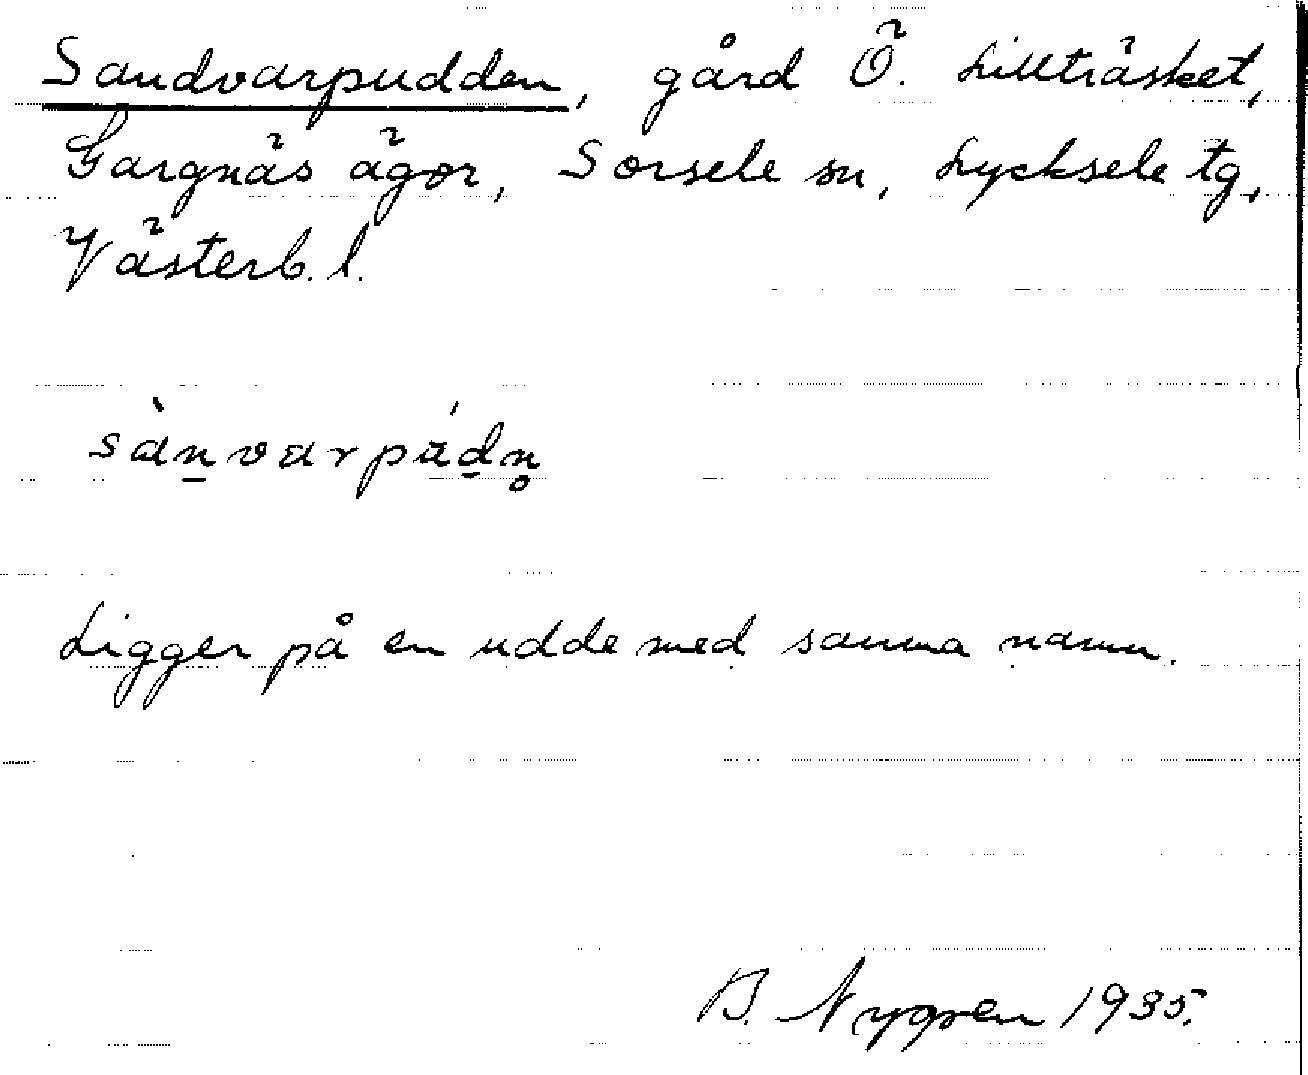 Sandvarpudden, gård Ö. Lillträsket,
Gargnäs ägor, Sorsele sn, Lycksele tg,
Västerb. l.
sànvarpúdn̥
Ligger på en udde med samma namn.
B. Nygren 1935.